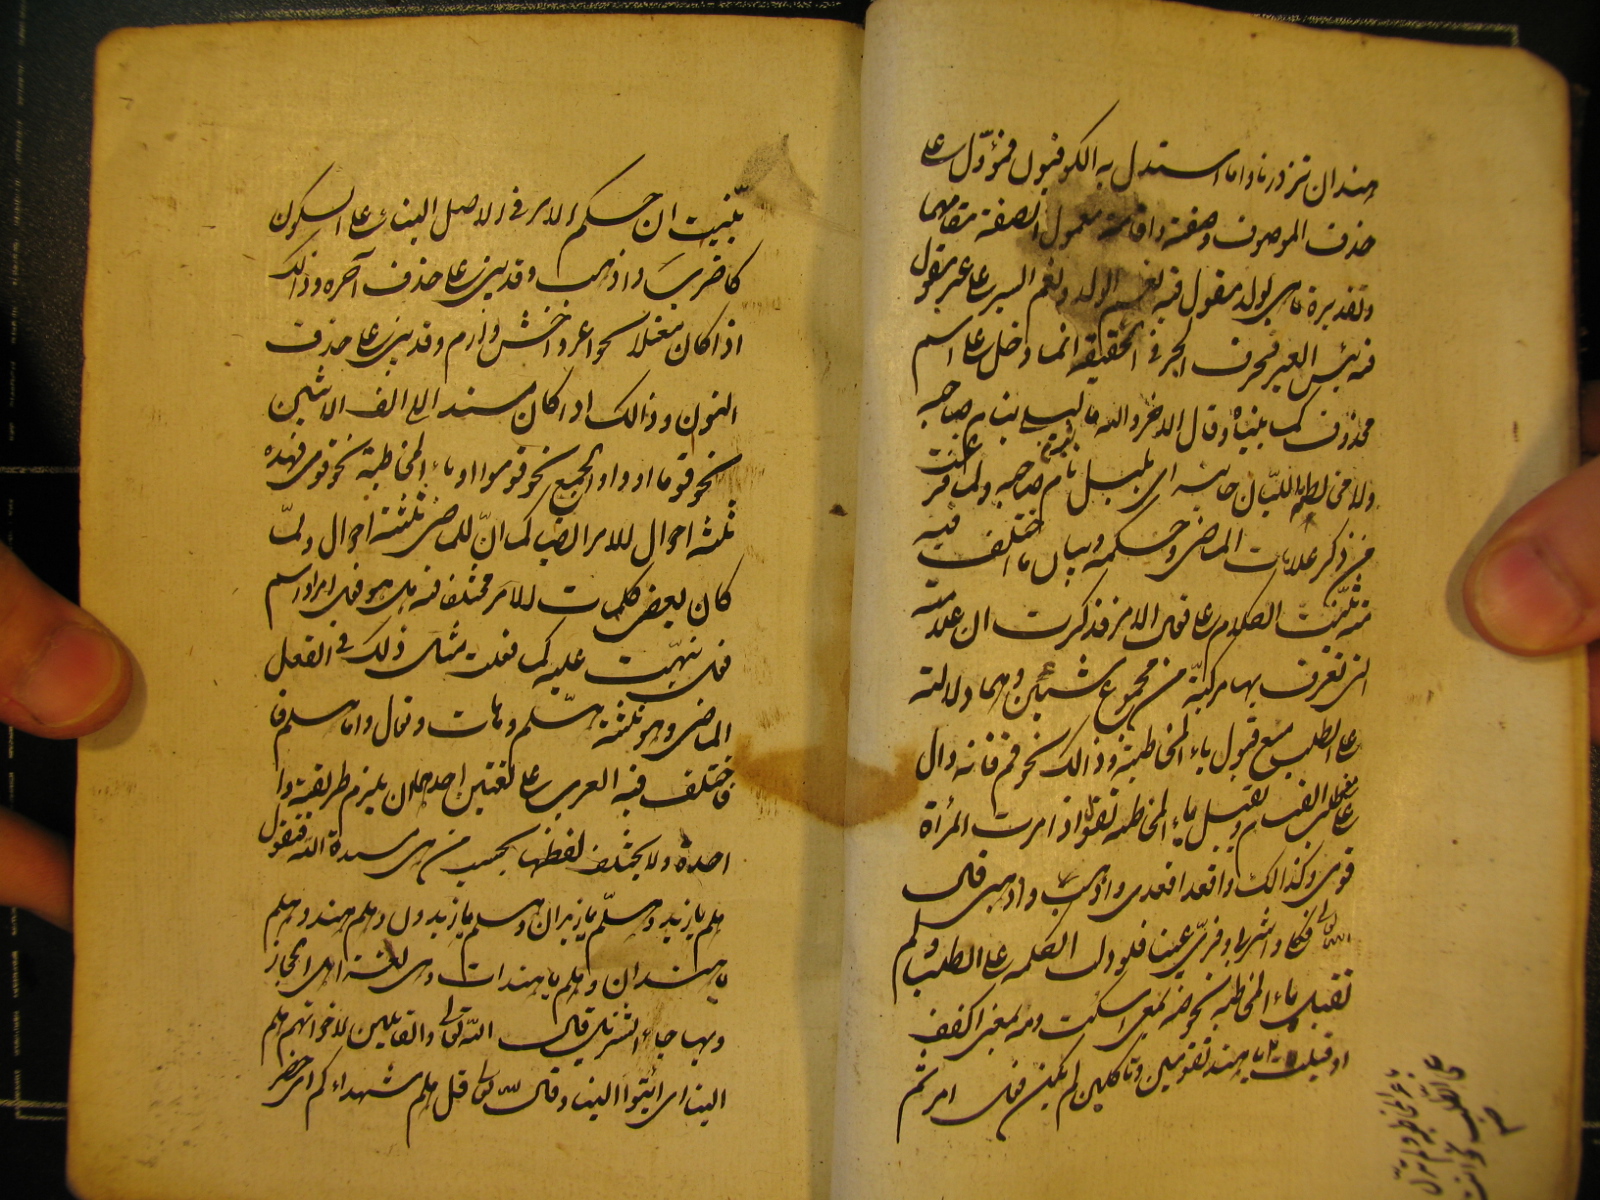 هندان تزورنا واما استدل به الكوفيون فمؤول على
حذف الموصوف وصفته واقامة معمول الصفة مقامهما
وتقديره ما هي بولد مقول فيه نعم الولد ونعم السير على عير مقول
فيه بئس العير فحرف الجر في الحقيقة انما دخل على اسم
محذوف كما بيناه وقال الاخر والله ما ليلي بنام صاحبه
ولا مخالط الليان جانبه اى بليل نام صاحبه ولما فرغت
من ذكر علامات الماضى وحكمه وبيان ما اختلف فيه
منه ثنيت الكلام على فعل الامر فذكرت ان علامته
التى تعرف بها مركبة من مجموع شيئين وهما دلالته
على الطلب مع قبول ياء المخاطبة وذالك نحو قم فانه دال
على طلب القيام ويقبل ياء المخاطبة تقول اذا امرت المرأة
قومى وكذالك واقعد اقعدى واذهب واذهبى قال
الله تعالى فكلى واشربى وقرى عينا فلو دلت الكلمة على الطلب ولم
تقبل ياء المخاطبة نحو صه بمعنى اسكت ومه بمعنى اكفف
او قبلت يا هند تقومين وتاكلين لم يكن فعل امر ثم
بينت ان حكم الامر في الاصل البناء على السكون
كاضرب واذهب وقد يبنى على حذف آخره وذالك
اذا كان معتلا نحو اغز واخش وارم وقد يبنى على حذف
النون وذالك اذا كان مسندا الى الف الاثنين
نحو قوما او واو الجمع نحو قوموا او ياء المخاطبة نحو قومى فهذه
ثلثة احوال للامر ايضا كما ان للماضى ثلثة احوال ولما
كان بعض كلمات للامر مختلفا فيه هل هو فعل امر او اسم
فعل نبهت عليه كما فعلت مثل ذلك في الفعل
الماضى وهو ثلثة هلم وهات وتعال واما هلم فا
فاختلف فيه العرب على لغتين احدهما ان يلزم طريقة وا
احدة ولا يختلف لفظها بحسب من هى مسندة اليه فتقول
هلم يا زيد وهلم يا زيدان وهلم يا زيدون وهلم هند وهلم
يا هندان وهلم يا هندات وهى لغة اهل الحجاز
وبها جاء التنزيل قال الله تعالى والقائلين لاخوانهم هلم
الينا اى ائتوا الينا وقال الله تعالى قل هلم شهداءكم اى احضر